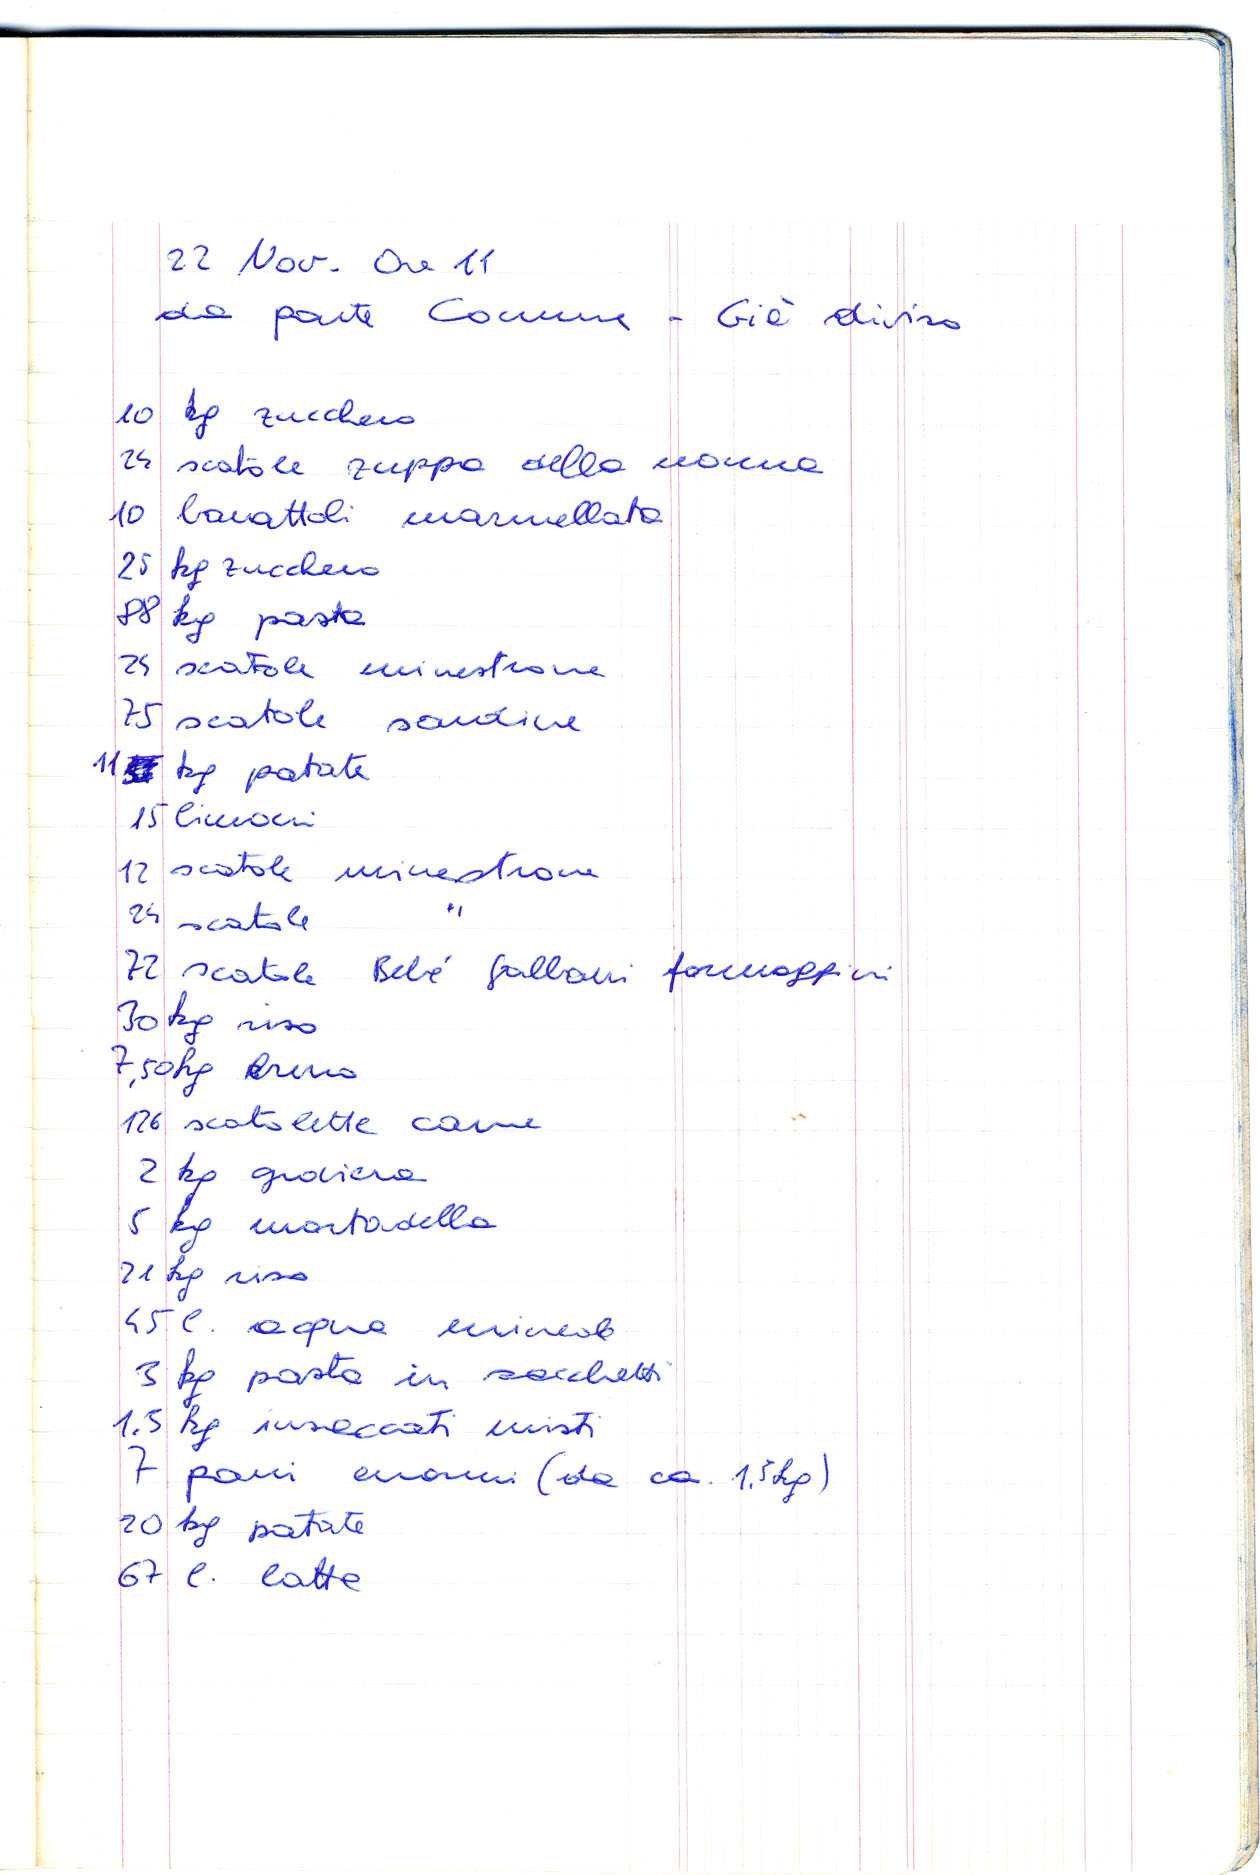 22 Nov. Ore 11
da parte Comune - Già diviso
10 kg zucchero
24 scatole zuppa della nonna
10 barattoli marmellata
25 kg zucchero
88 kg pasta
24 scatole minestrone
75 scatole sardine
11 kg patate
15 limoni
12 scatole minestrone
24 scatole "
72 scatole Bebé galbani formaggini
30 kg riso
7,50 kg
126 scatolette carne
2 kg groviera
5 kg mortadella
21 kg riso
45 l. acqua minerale
3 kg pasta in sacchetti
1.5 kg insaccati misti
7 pani enormi (da ca. 1.5 kg)
20 kg patate
67 l. latte